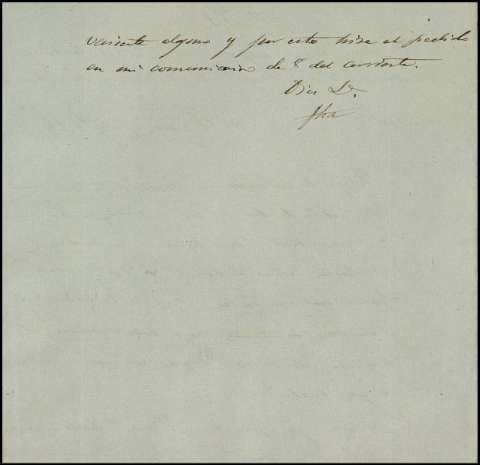 variente alguno y por esto hize el pedido
en mi comunicacion de 8 del corriente.
Dios &a.